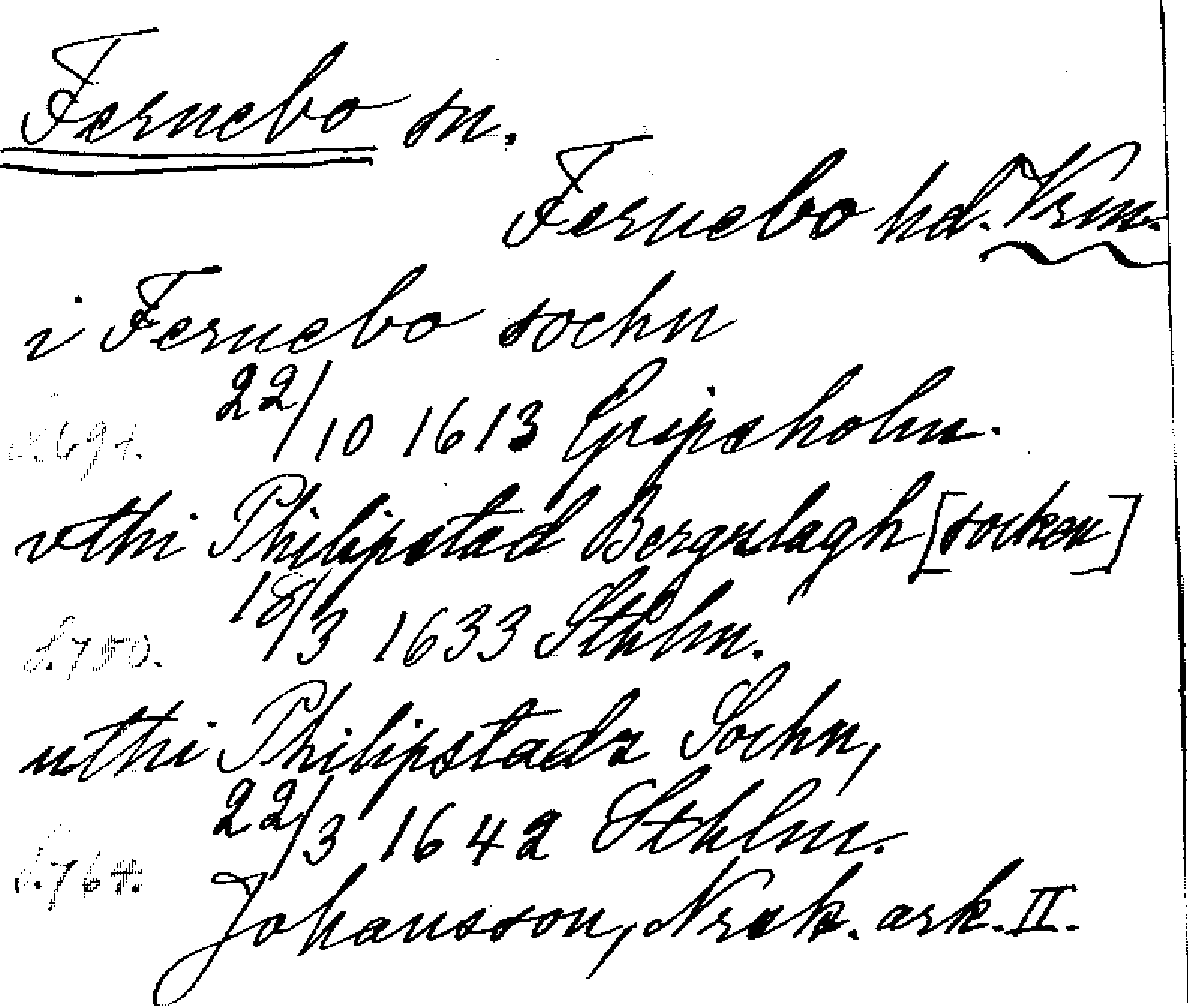 Fernebo sn.
Fernebo hd. Vrm.
i Fernebo sochn
22/10 1613 Gripsholm.
s. 691.
vthi Philipstad Bergzlagh [socken]
18/3 1633 Sthlm.
S. 750.
uthi Philipstadz Sochn,
22/3 1642 Sthlm.
S. 764.
Johansson, Nrsk. ark. II.